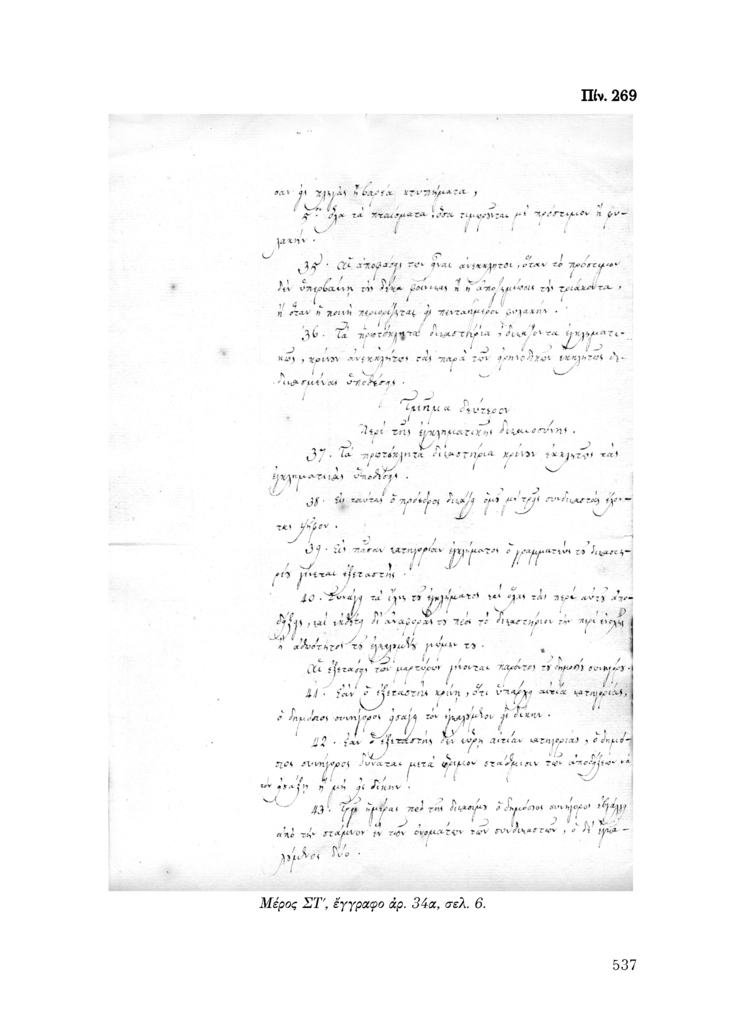 Πίν. 269
σαν εἰς πληγὰς ἢ βαρέα κτυπήματα,
ὅλα τὰ πταίσματα, ὅσα τιμωροῦνται μὲ πρόστιμον ἢ φυ-
λακήν.
35. Αἱ ἀποφάσεις των εἶναι ἀνέκκλητοι, ὅταν τὸ πρόστιμον
δὲν ὑπερβαίνῃ τοὺς δέκα φοίνικας ἢ ἡ ἀποζημίωσις τοὺς τριάκοντα,
ἢ ὅταν ἡ ποινὴ περιορίζεται εἰς πενταήμερον φυλακήν.
36. Τὰ πρωτόκλητα δικαστήρια, δικάζοντα ἐγκληματι-
κῶς, κρίνουν ἀνεκκλήτως τὰς παρὰ τῶν εἰρηνοδικῶν ἐκκλήτως δε-
δικασμένας ὑποθέσεις.
Τμῆμα δεύτερον
Περὶ τῆς ἐγκληματικῆς δικαιοσύνης.
37. Τὰ πρωτόκλητα δικαστήρια κρίνουν ἐκκλήτως τὰς
ἐγκληματικὰς ὑποθέσεις.
38. Εἰς ταύτας ὁ πρόεδρος δικάζει ὁμοῦ μὲ τρεῖς συνδικαστὰς ἔχον-
τας ψῆφον.
39. Εἰς πᾶσαν κατηγορίαν ἐγκλήματος ὁ γραμματεὺς τοῦ δικαστη-
ρίου γίνεται ἐξεταστής.
40. Συνάγει τὰ ἴχνη τοῦ ἐγκλήματος καὶ ὅλας τὰς περὶ αὐτοῦ ἀπο-
δείξεις, καὶ ἐκθέτει δι' ἀναφορᾶς του πρὸς τὸ δικαστήριον τὴν περὶ ἐνοχῆς
ἢ ἀθωότητος τοῦ ἐγκαλουμένου γνώμην του.
Αἱ ἐξετάσεις τῶν μαρτύρων γίνονται παρόντος τοῦ δημοσίου συνηγόρου.
41. Ἐὰν ὁ ἐξεταστὴς κρίνῃ, ὅτι ὑπάρχει αἰτία κατηγορίας,
ὁ δημόσιος συνήγορος εἰσάγει τὸν ἐγκαλούμενον εἰς δίκην.
42. Ἐὰν ὁ ἐξεταστὴς δὲν εὕρῃ αἰτίαν κατηγορίας, ὁ δημό-
σιος συνήγορος δύναται μετὰ ὥριμον στάθμισιν τῶν ἀποδείξεων νὰ
τὸν εἰσάξῃ ἢ μὴ εἰς δίκην.
43. Τρεῖς ἡμέρας πρὸ τῆς δικασίμου ὁ δημόσιος συνήγορος ἐξάγει
ἀπὸ τὴν στάμνον ἓν τῶν ὀνομάτων τῶν συνδικαστῶν, ὁ δὲ ἐγκα-
λούμενος δύο.
Μέρος ΣΤ', ἔγγραφο ἀρ. 34α, σελ. 6.
537